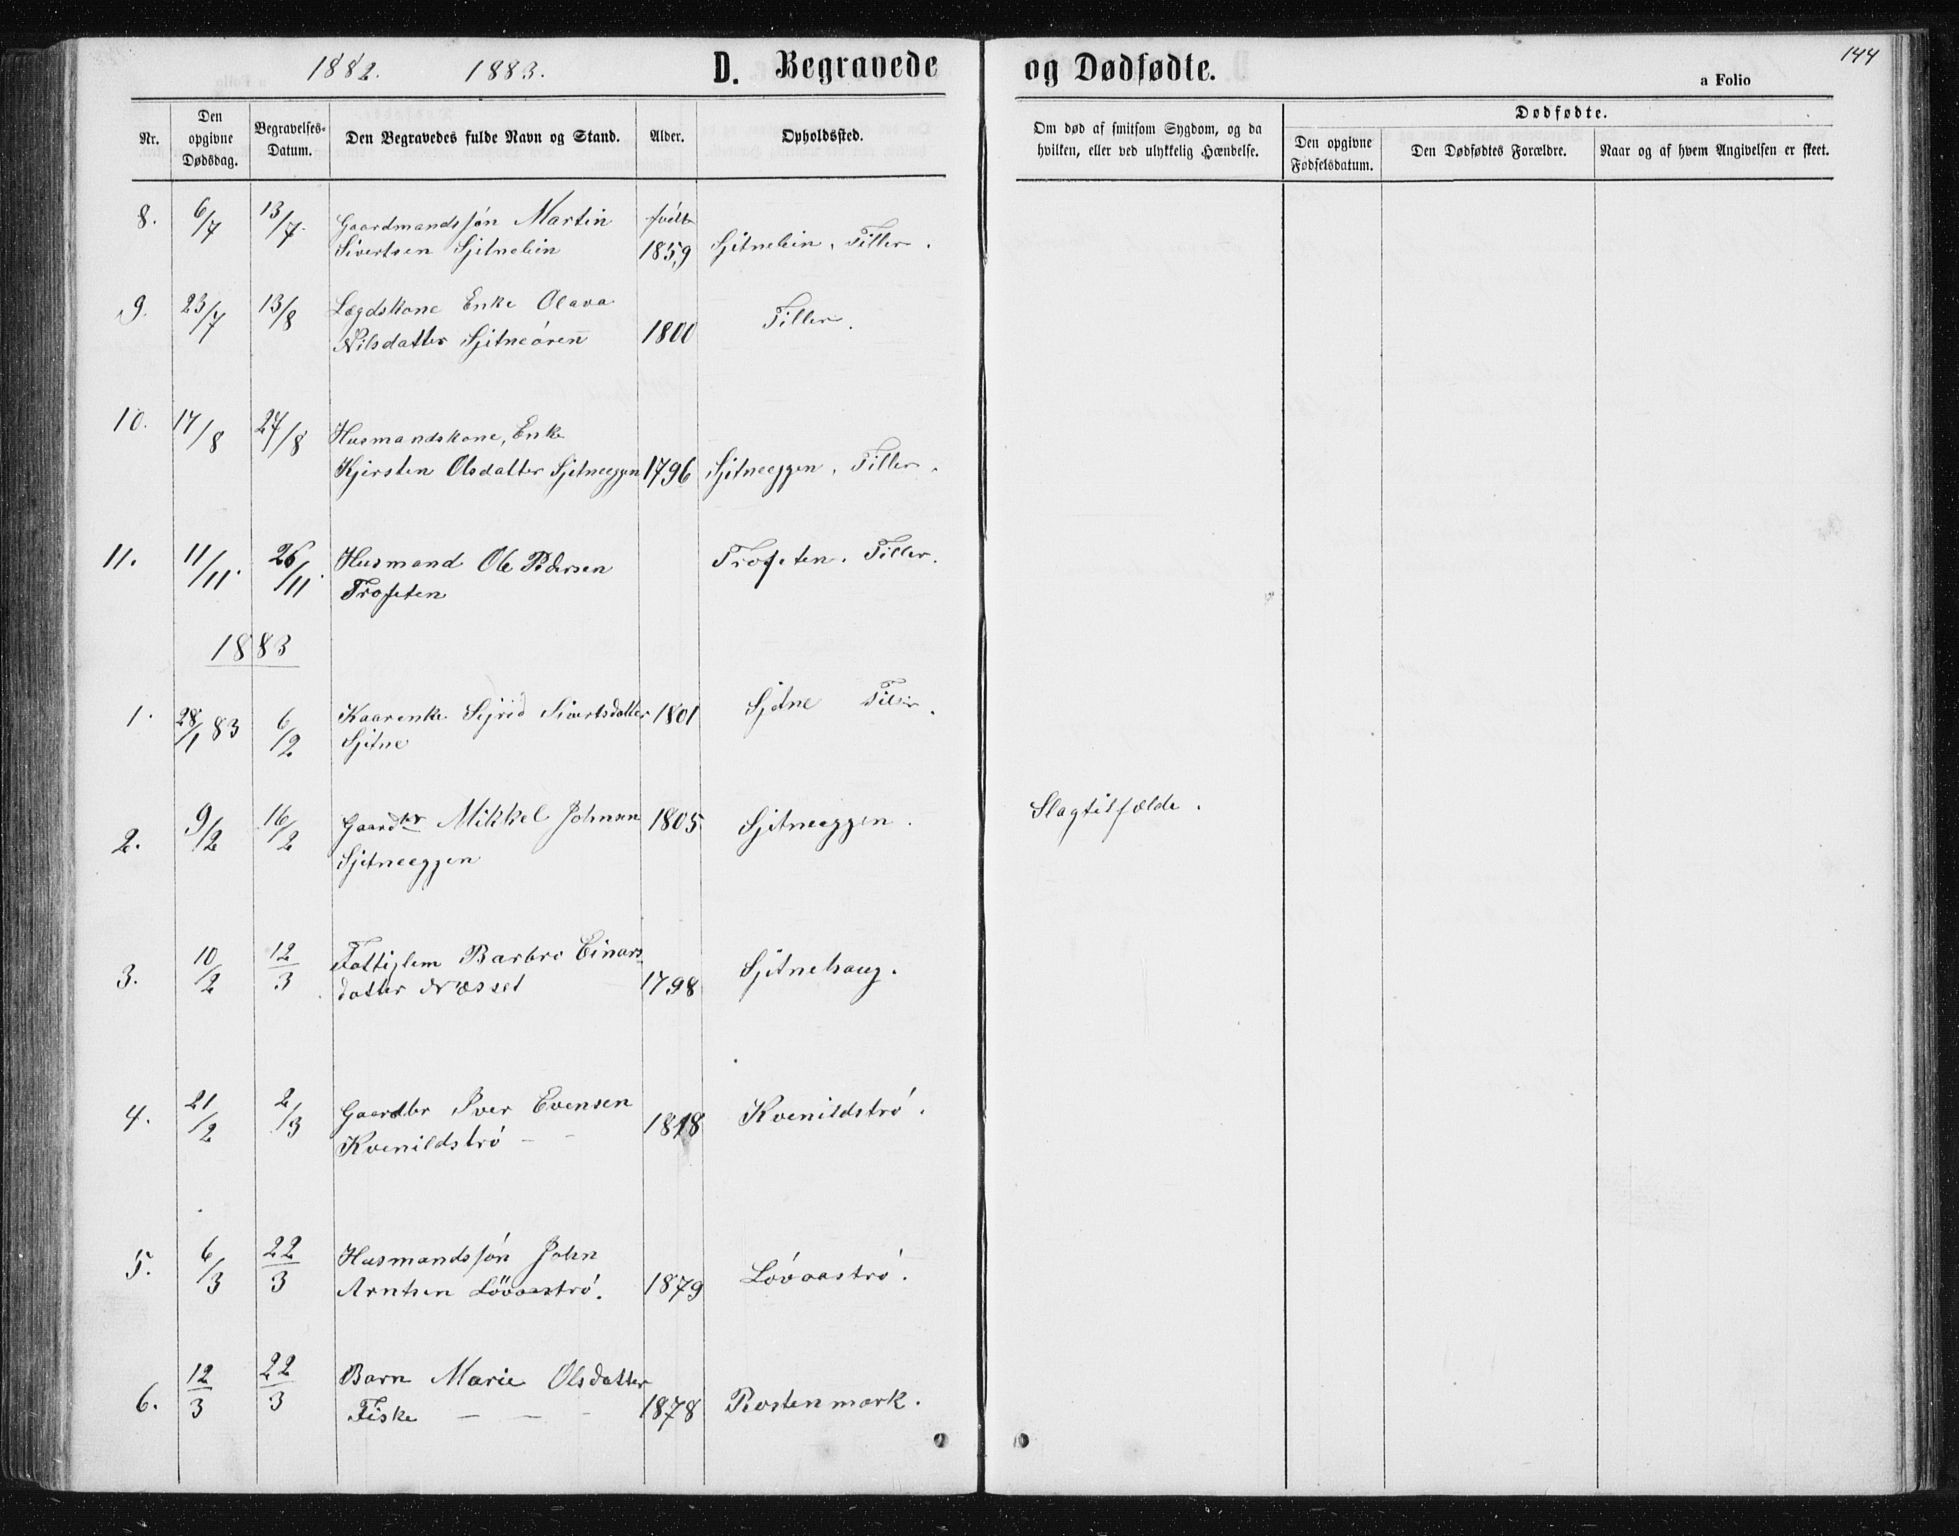 1882. 1883. D. Begravede og Dødfødte. 144
a Folio
Nr. Den opgivne Dødsdag. Begravelses-Datum. Den Begravedes fulde Navn og Stand. Alder. Opholdssted. Om død af smitsom Sygdom, og da hvilken, eller ved ulykkelig Hændelse. Dødfødte.
Den opgivne Fødselsdatum. Den Dødfødtes Forældre. Naar og af hvem Angivelsen er skeet.
8. 6/7 13/7. Gaardmandssøn Martin født
Sivertsen Sjitnelien 1859 Sjitnelien. Tiller.
9. 23/7 13/8 Lægdskone Enke Olava
Nilsdatter Sjitneøren 1800 Tiller.
10. 17/8 27/8 Husmandskone, Enke
Kjersten Olsdatter Sjitneeggen 1796 Sjitneeggen. Tiller.
11. 11/11. 26/11. Husmand Ole Pedersen Trofeten. Tiller.
Trofeten
1883
1. 28/1 83 6/2 Kaarenke Sejrid Sivertsdatter 1801 Sjitne Tiller.
Sjitne
2. 9/2 16/2 Gaardbr Mikkel Johnsen 1805 Sjitneeggen. Slagtilfælde.
Sjitneeggen
3. 10/2 12/3 Fattiglem Barbro Einars-
datter Næsset 1798 Sjitnehaug.
4. 21/2 2/3 Gaardbr Iver Evensen
Kvenildstrø – – 1818 Kvenildstrø.
5. 6/3 22/3 Husmandssøn John
Arntsen Løvaastrø. 1879 Løvaastrø.
6. 12/3 22/3 Barn Marie Olsdatter
Fiske – – – 1878 Rostenmark.